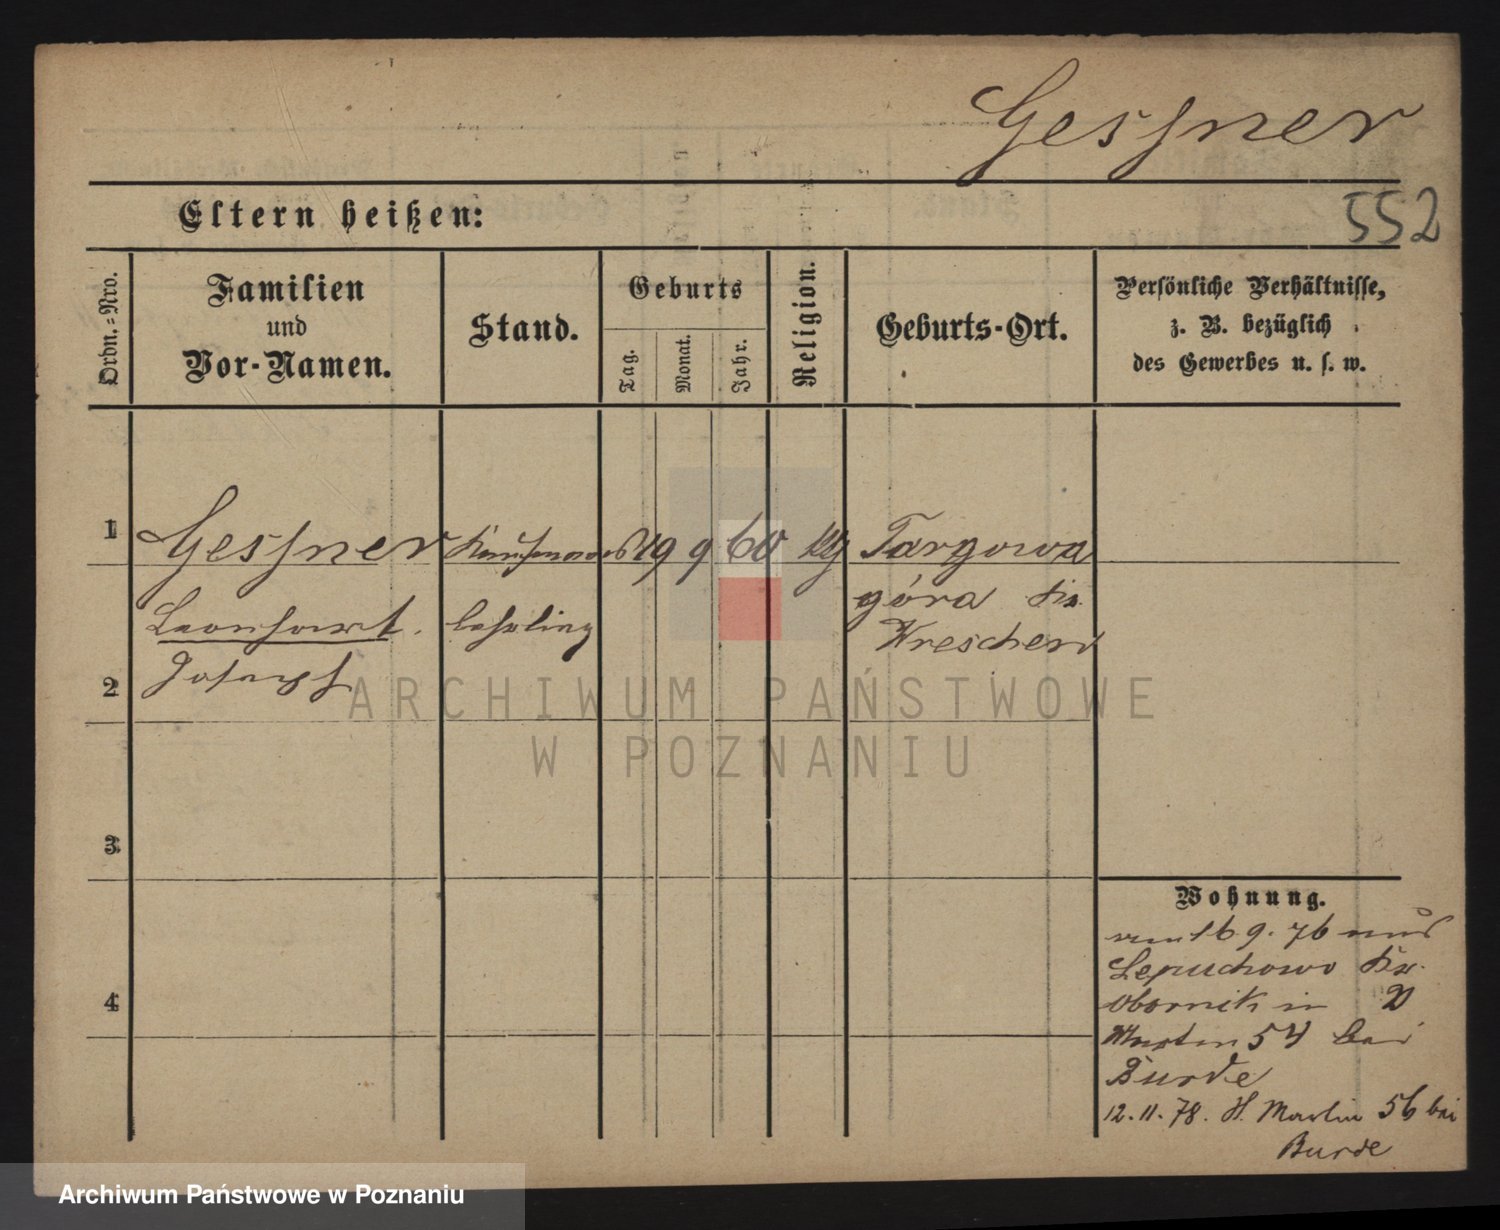 Gessner
552
Eltern heißen:
Ordn.=Nro.
Familien
und
Vor-Namen.
Stand.
Geburts
Tag.
Monat.
Jahr.
Religion.
Geburts-Ort.
Persönliche Verhältnisse,
z. B. bezüglich
des Gewerbes u. s. w.
1
Gessner Kaufmanns 19 9 60 Targowa
Leonhart. lehrling góra Kr.
Joseph Wreschen
2
3
4
Wohnung.
16 9. 76 aus
Lepuchowo Kr.
Obornik in
Martin 54 bei
Burde
12. 11. 78. St. Martin 56 bei
Burde
ARCHIWUM PAŃSTWOWE
W POZNANIU
Archiwum Państwowe w Poznaniu